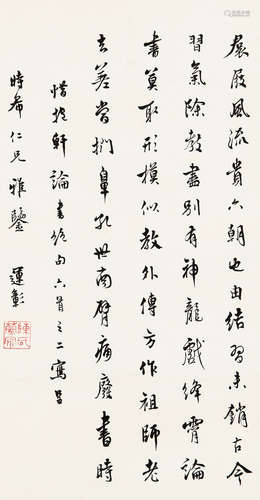 裙屐風流貴六朝也由結習未銷古今
習氣除教盡別有神龍戲絳霄論
書莫取形模似教外傳方作祖師老
去差當捫鼻孔世南臂痛廢書時
惜抱軒論書絕句六首之二寫呈
時希仁兄雅鑒 運彰